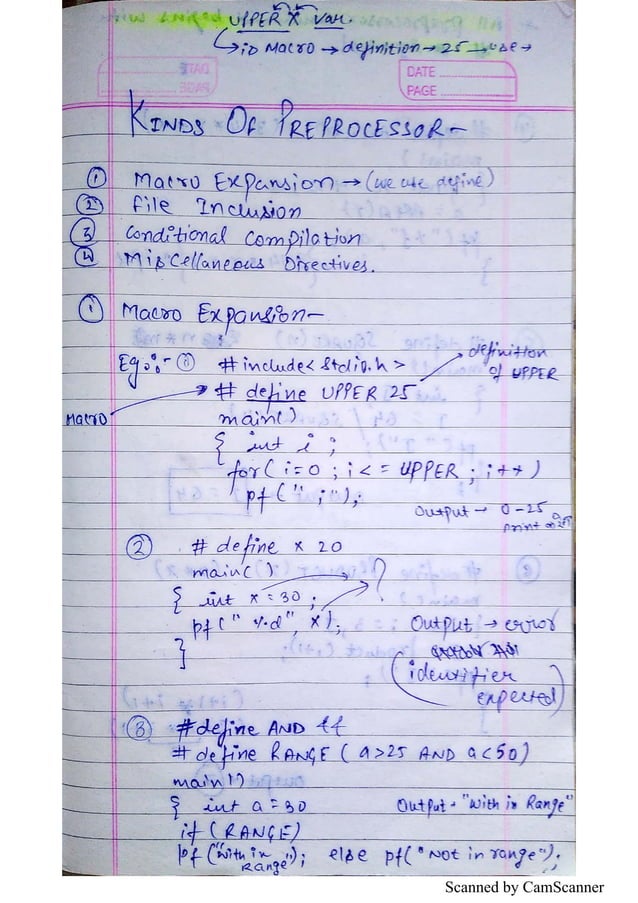 UPPER X var.
↳ is Macro → definition → 25 → use →
DATE
PAGE
KINDS OF PREPROCESSOR-
① Macro Expansion → (we use define)
② File Inclusion
③ conditional compilation
④ Miscellaneous Directives.
① Macro Expansion-
Eg:- ① #include< stdio.h >
definition of UPPER
MACRO
# define UPPER 25
main()
{ int i ;
for( i=0 ; i<= UPPER ; i++)
pf (" ; ");
Output → 0-25
② # define x 20
main()
{ int x=30 ;
?
pf (" %d", x);
Output → error
}
(identifier expected)
③ #define AND &&
# define RANGE ( a>25 AND a<50)
main()
{ int a=30
Output - "with in Range"
if (RANGE)
pf ("with in Range"); else pf(" Not in range");
Scanned by CamScanner